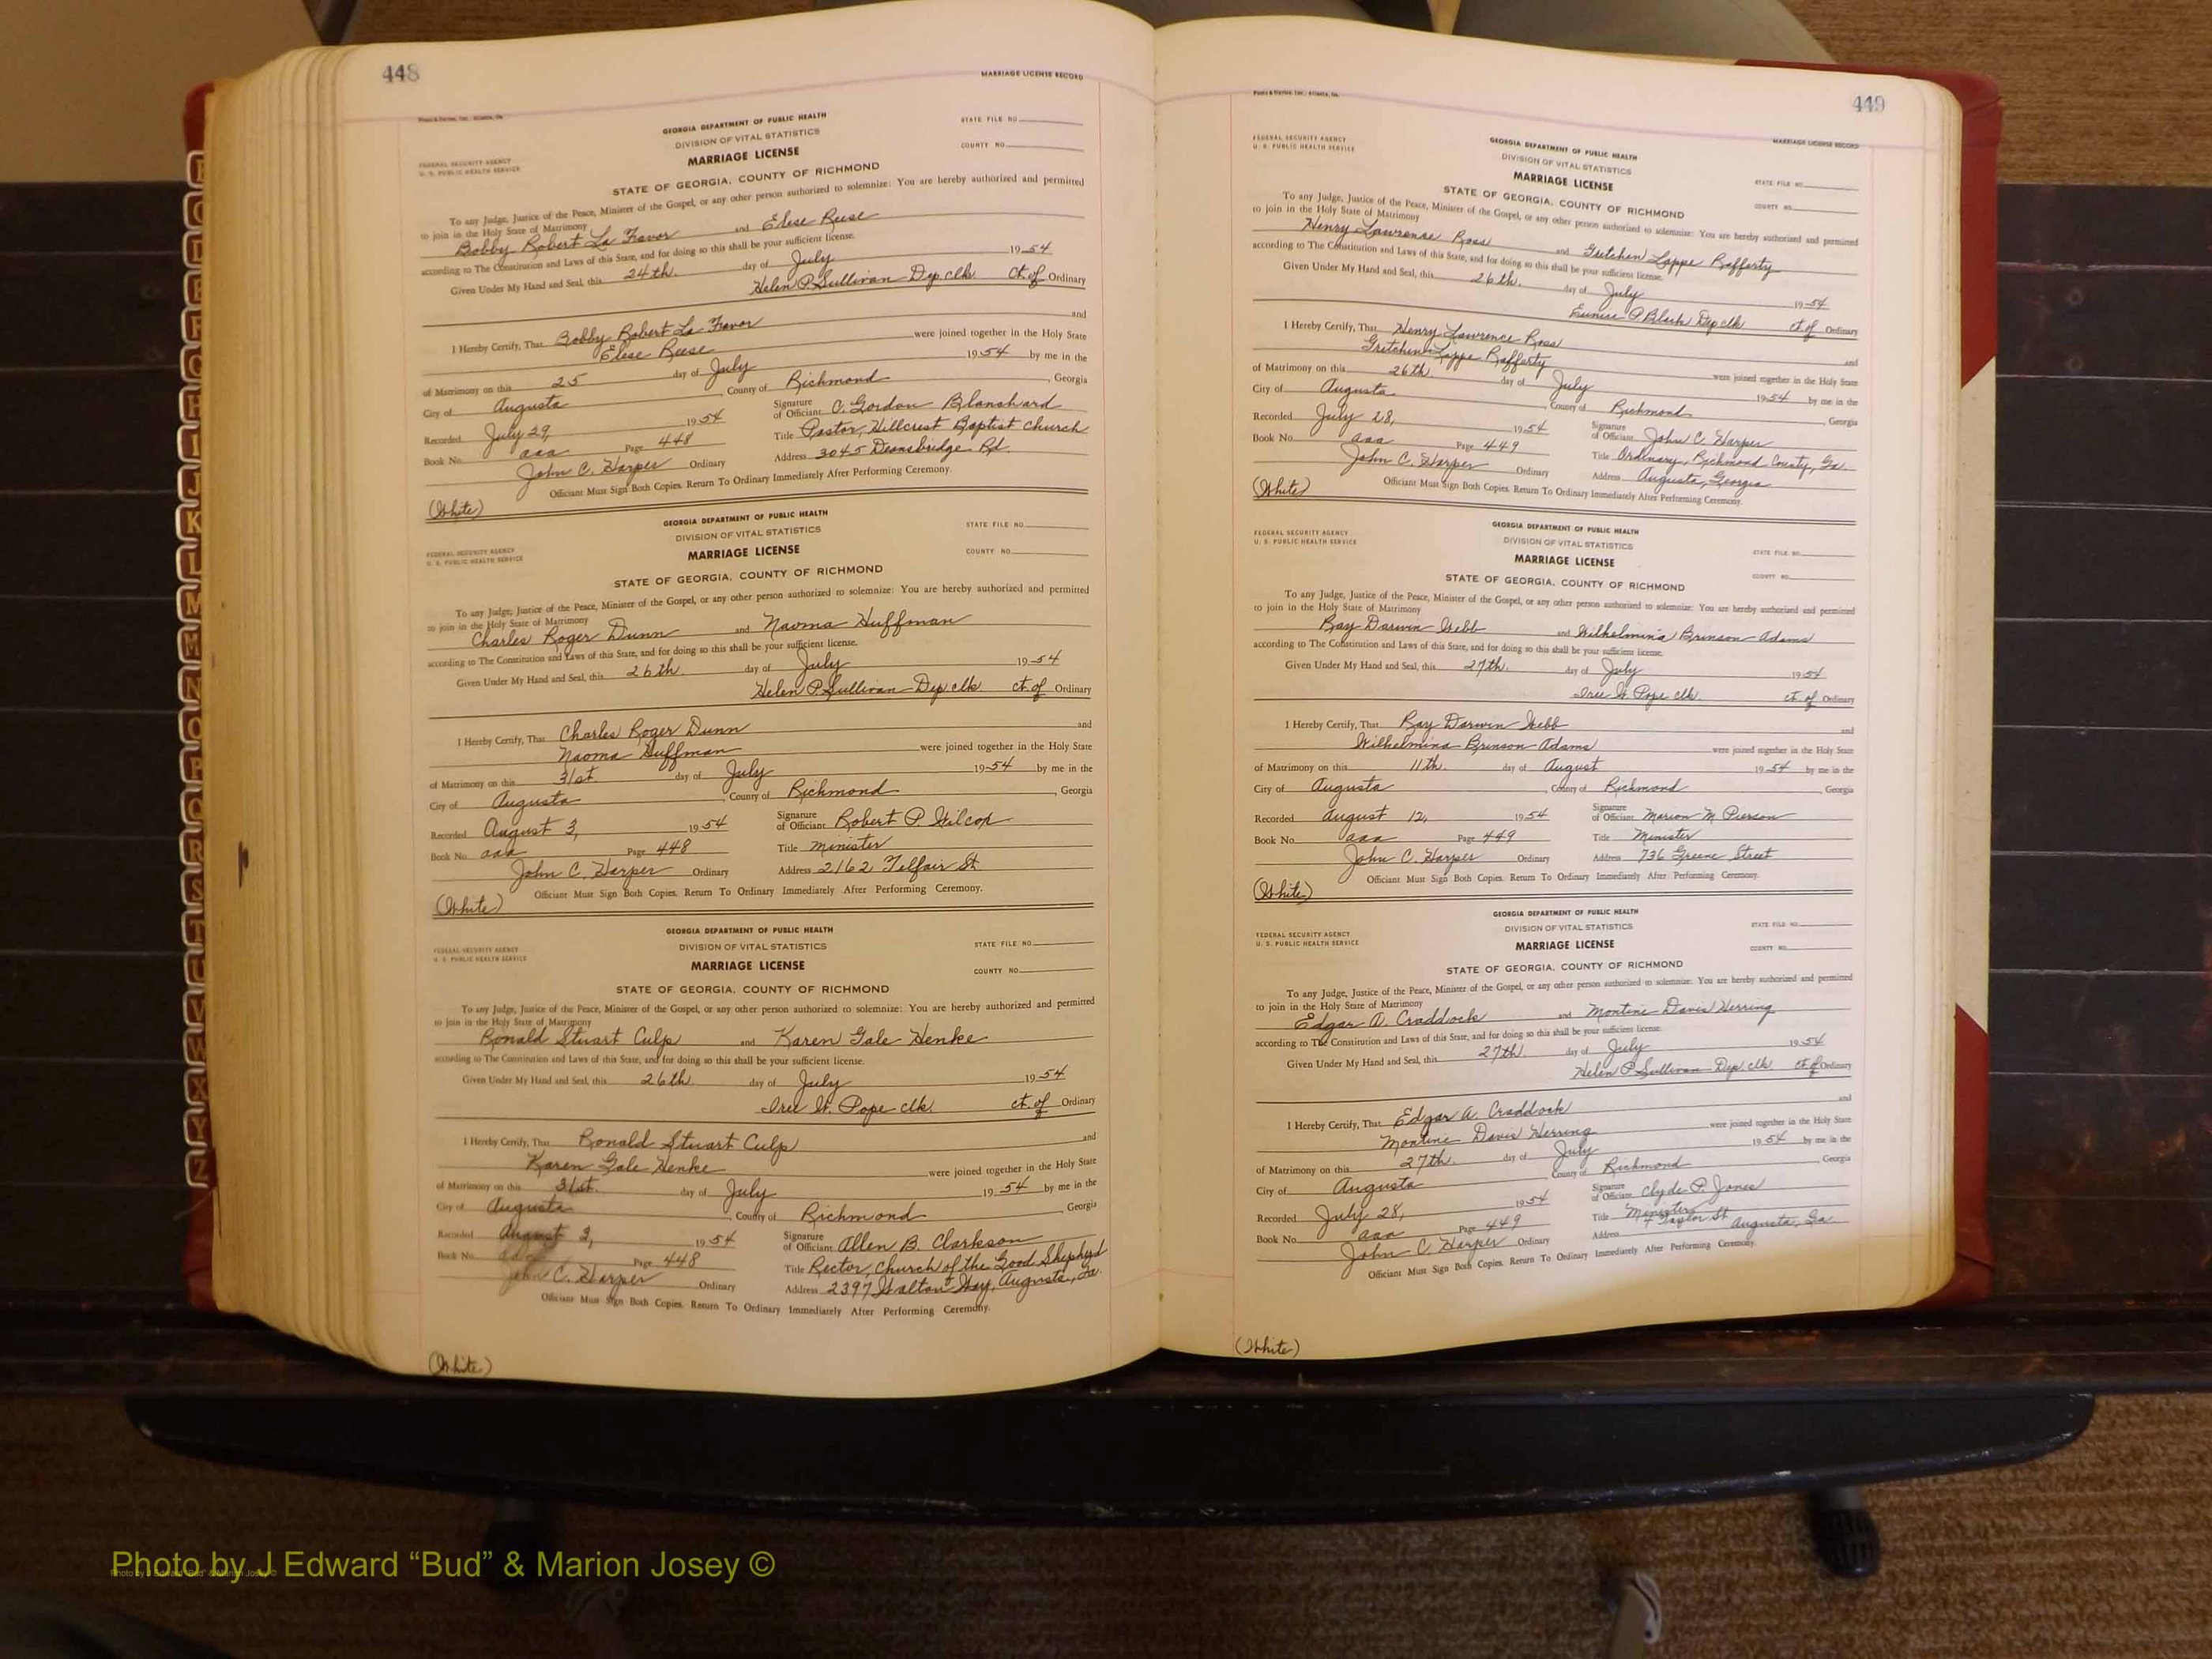 448
MARRIAGE LICENSE RECORD
GEORGIA DEPARTMENT OF PUBLIC HEALTH
DIVISION OF VITAL STATISTICS
MARRIAGE LICENSE
STATE OF GEORGIA, COUNTY OF RICHMOND
FEDERAL SECURITY AGENCY
U. S. PUBLIC HEALTH SERVICE
STATE FILE NO.
COUNTY NO.
To any Judge, Justice of the Peace, Minister of the Gospel, or any other person authorized to solemnize: You are hereby authorized and permitted
to join in the Holy State of Matrimony
Bobby Robert La Favor and Elese Reese
according to The Constitution and Laws of this State, and for doing so this shall be your sufficient license.
Given Under My Hand and Seal, this 24th. day of July 1954
Helen P. Sullivan Dep. clk. Ct. of Ordinary
I Hereby Certify, That Bobby Robert La Favor and
Elese Reese were joined together in the Holy State
of Matrimony on this 25 day of July 1954 by me in the
City of Augusta, County of Richmond, Georgia
Recorded July 29, 1954 Signature of Officiant C. Gordon Blanchard
Book No. aaa Page 448 Title Pastor, Hillcrest Baptist Church
John C. Harper Ordinary Address 3045 Deansbridge Rd.
Officiant Must Sign Both Copies. Return To Ordinary Immediately After Performing Ceremony.
(White)
GEORGIA DEPARTMENT OF PUBLIC HEALTH
DIVISION OF VITAL STATISTICS
MARRIAGE LICENSE
STATE OF GEORGIA, COUNTY OF RICHMOND
FEDERAL SECURITY AGENCY
U. S. PUBLIC HEALTH SERVICE
STATE FILE NO.
COUNTY NO.
To any Judge, Justice of the Peace, Minister of the Gospel, or any other person authorized to solemnize: You are hereby authorized and permitted
to join in the Holy State of Matrimony
Charles Roger Dunn and Naoma Huffman
according to The Constitution and Laws of this State, and for doing so this shall be your sufficient license.
Given Under My Hand and Seal, this 26th. day of July 1954
Helen P. Sullivan Dep. clk ct. of Ordinary
I Hereby Certify, That Charles Roger Dunn and
Naoma Huffman were joined together in the Holy State
of Matrimony on this 31st. day of July 1954 by me in the
City of Augusta, County of Richmond, Georgia
Recorded August 3, 1954 Signature of Officiant Robert P. Wilcox
Book No. aaa Page 448 Title Minister
John C. Harper Ordinary Address 2162 Telfair St.
Officiant Must Sign Both Copies. Return To Ordinary Immediately After Performing Ceremony.
(White)
GEORGIA DEPARTMENT OF PUBLIC HEALTH
DIVISION OF VITAL STATISTICS
MARRIAGE LICENSE
STATE OF GEORGIA, COUNTY OF RICHMOND
FEDERAL SECURITY AGENCY
U. S. PUBLIC HEALTH SERVICE
STATE FILE NO.
COUNTY NO.
To any Judge, Justice of the Peace, Minister of the Gospel, or any other person authorized to solemnize: You are hereby authorized and permitted
to join in the Holy State of Matrimony
Ronald Stuart Culp and Karen Gale Henke
according to The Constitution and Laws of this State, and for doing so this shall be your sufficient license.
Given Under My Hand and Seal, this 26th day of July 1954
W. Pope clk. ct. of Ordinary
I Hereby Certify, That Ronald Stuart Culp and
Karen Gale Henke were joined together in the Holy State
of Matrimony on this 31st. day of July 1954 by me in the
City of Augusta, County of Richmond, Georgia
Recorded August 1954 Signature of Officiant Allen B. Clarkson
Book No. Page 448 Title Rector, Church of the Good Shepherd
John C. Harper Ordinary Address 2397 Walton Way, Augusta, Ga.
Officiant Must Sign Both Copies. Return To Ordinary Immediately After Performing Ceremony.
(White)
449
MARRIAGE LICENSE RECORD
FEDERAL SECURITY AGENCY
U. S. PUBLIC HEALTH SERVICE
GEORGIA DEPARTMENT OF PUBLIC HEALTH
DIVISION OF VITAL STATISTICS
MARRIAGE LICENSE
STATE OF GEORGIA, COUNTY OF RICHMOND
STATE FILE NO.
COUNTY NO.
To any Judge, Justice of the Peace, Minister of the Gospel, or any other person authorized to solemnize: You are hereby authorized and permitted
to join in the Holy State of Matrimony
Henry Lawrence Ross and Gretchen Lappe Rafferty
according to The Constitution and Laws of this State, and for doing so this shall be your sufficient license.
Given Under My Hand and Seal, this 26th. day of July 1954
Eunice P. Black Dep clk ct. of Ordinary
I Hereby Certify, That Henry Lawrence Ross and
Gretchen Lappe Rafferty were joined together in the Holy State
of Matrimony on this 26th. day of July 1954 by me in the
City of Augusta, County of Richmond, Georgia
Recorded July 28, 1954 Signature of Officiant John C. Harper
Book No. aaa Page 449 Title Ordinary, Richmond County, Ga.
John C. Harper Ordinary Address Augusta, Georgia
Officiant Must Sign Both Copies. Return To Ordinary Immediately After Performing Ceremony.
(White)
FEDERAL SECURITY AGENCY
U. S. PUBLIC HEALTH SERVICE
GEORGIA DEPARTMENT OF PUBLIC HEALTH
DIVISION OF VITAL STATISTICS
MARRIAGE LICENSE
STATE OF GEORGIA, COUNTY OF RICHMOND
STATE FILE NO.
COUNTY NO.
To any Judge, Justice of the Peace, Minister of the Gospel, or any other person authorized to solemnize: You are hereby authorized and permitted
to join in the Holy State of Matrimony
Ray Darwin Webb and Wilhelmina Brinson Adams
according to The Constitution and Laws of this State, and for doing so this shall be your sufficient license.
Given Under My Hand and Seal, this 27th. day of July 1954
W. Pope clk. ct. of Ordinary
I Hereby Certify, That Ray Darwin Webb and
Wilhelmina Brinson Adams were joined together in the Holy State
of Matrimony on this 11th. day of August 1954 by me in the
City of Augusta, County of Richmond, Georgia
Recorded August 12, 1954 Signature of Officiant Marion M. Pierson
Book No. aaa Page 449 Title Minister
John C. Harper Ordinary Address 736 Greene Street
Officiant Must Sign Both Copies. Return To Ordinary Immediately After Performing Ceremony.
(White)
FEDERAL SECURITY AGENCY
U. S. PUBLIC HEALTH SERVICE
GEORGIA DEPARTMENT OF PUBLIC HEALTH
DIVISION OF VITAL STATISTICS
MARRIAGE LICENSE
STATE OF GEORGIA, COUNTY OF RICHMOND
STATE FILE NO.
COUNTY NO.
To any Judge, Justice of the Peace, Minister of the Gospel, or any other person authorized to solemnize: You are hereby authorized and permitted
to join in the Holy State of Matrimony
Edgar A. Craddock and Montine Davis Herring
according to The Constitution and Laws of this State, and for doing so this shall be your sufficient license.
Given Under My Hand and Seal, this 27th. day of July 1954
Helen P. Sullivan Dep. clk. ct. of Ordinary
I Hereby Certify, That Edgar A. Craddock and
Montine Davis Herring were joined together in the Holy State
of Matrimony on this 27th. day of July 1954 by me in the
City of Augusta County of Richmond, Georgia
Recorded July 28, 1954 Signature of Officiant Clyde P. Jones
Book No. aaa Page 449 Title Minister
John C. Harper Ordinary Address Taylor St. Augusta, Ga.
Officiant Must Sign Both Copies. Return To Ordinary Immediately After Performing Ceremony.
(White)
Photo by J Edward “Bud” & Marion Josey ©